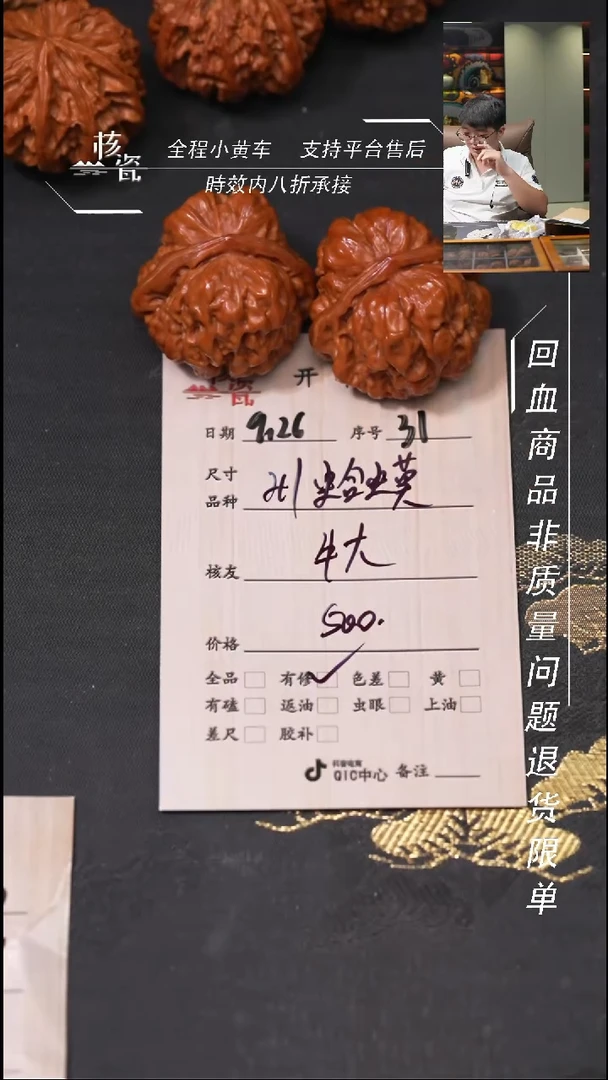 核瓷
全程小黄车 支持平台售后
時效内八折承接
回血商品非质量问题退货限单
开
日期 9.26 序号 31
尺寸
品种
核友 牛大
价格 500.
全品 有修 ✓ 色差 黄
有磕 返油 虫眼 上油
差尺 胶补
抖音电商
QIC中心 备注